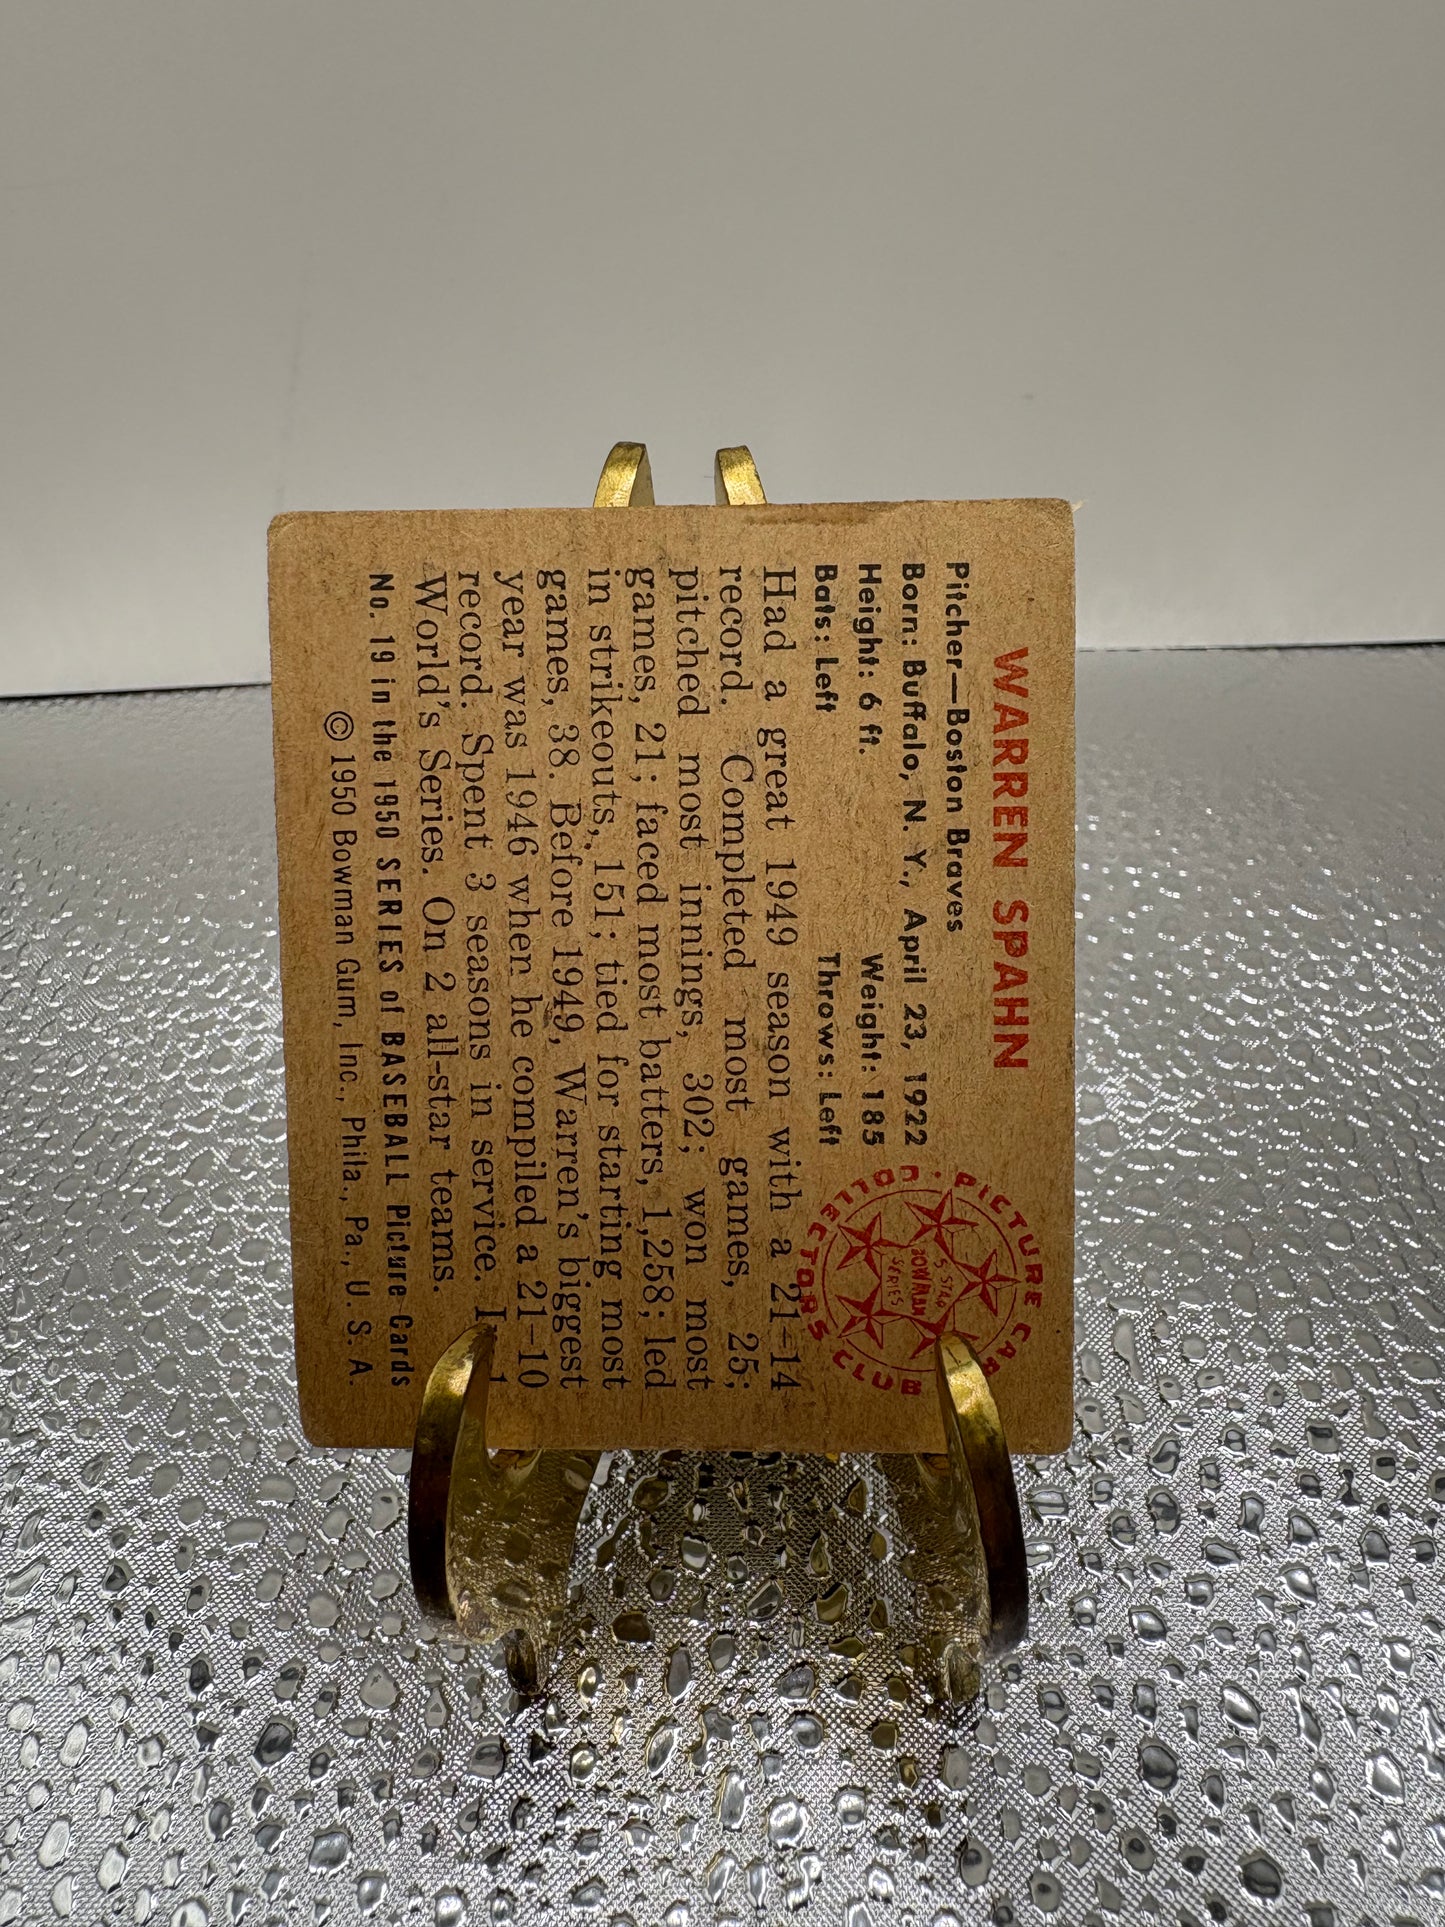 WARREN SPAHN
Pitcher—Boston Braves
Born: Buffalo, N. Y., April 23, 1922
Height: 6 ft. Weight: 185
Bats: Left Throws: Left
PICTURE CARD COLLECTORS CLUB
5 STAR
BOWMAN
SERIES
Had a great 1949 season with a 21-14
record. Completed most games, 25;
pitched most innings, 302; won most
games, 21; faced most batters, 1,258; led
in strikeouts, 151; tied for starting most
games, 38. Before 1949, Warren's biggest
year was 1946 when he compiled a 21-10
record. Spent 3 seasons in service. 1
World's Series. On 2 all-star teams.
No. 19 in the 1950 SERIES of BASEBALL Picture Cards
© 1950 Bowman Gum, Inc., Phila., Pa., U. S. A.